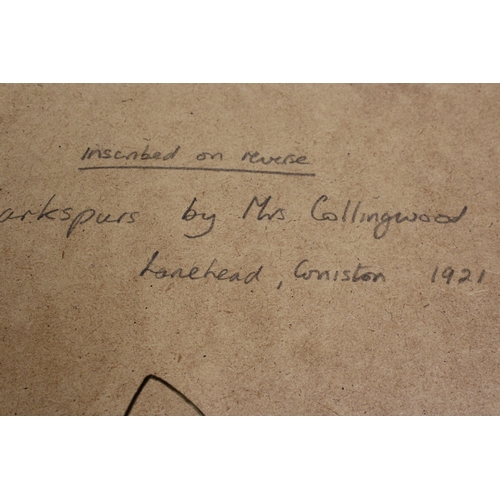 inscribed on reverse
arkspurs by Mrs Collingwood
Lanehead, Coniston 1921